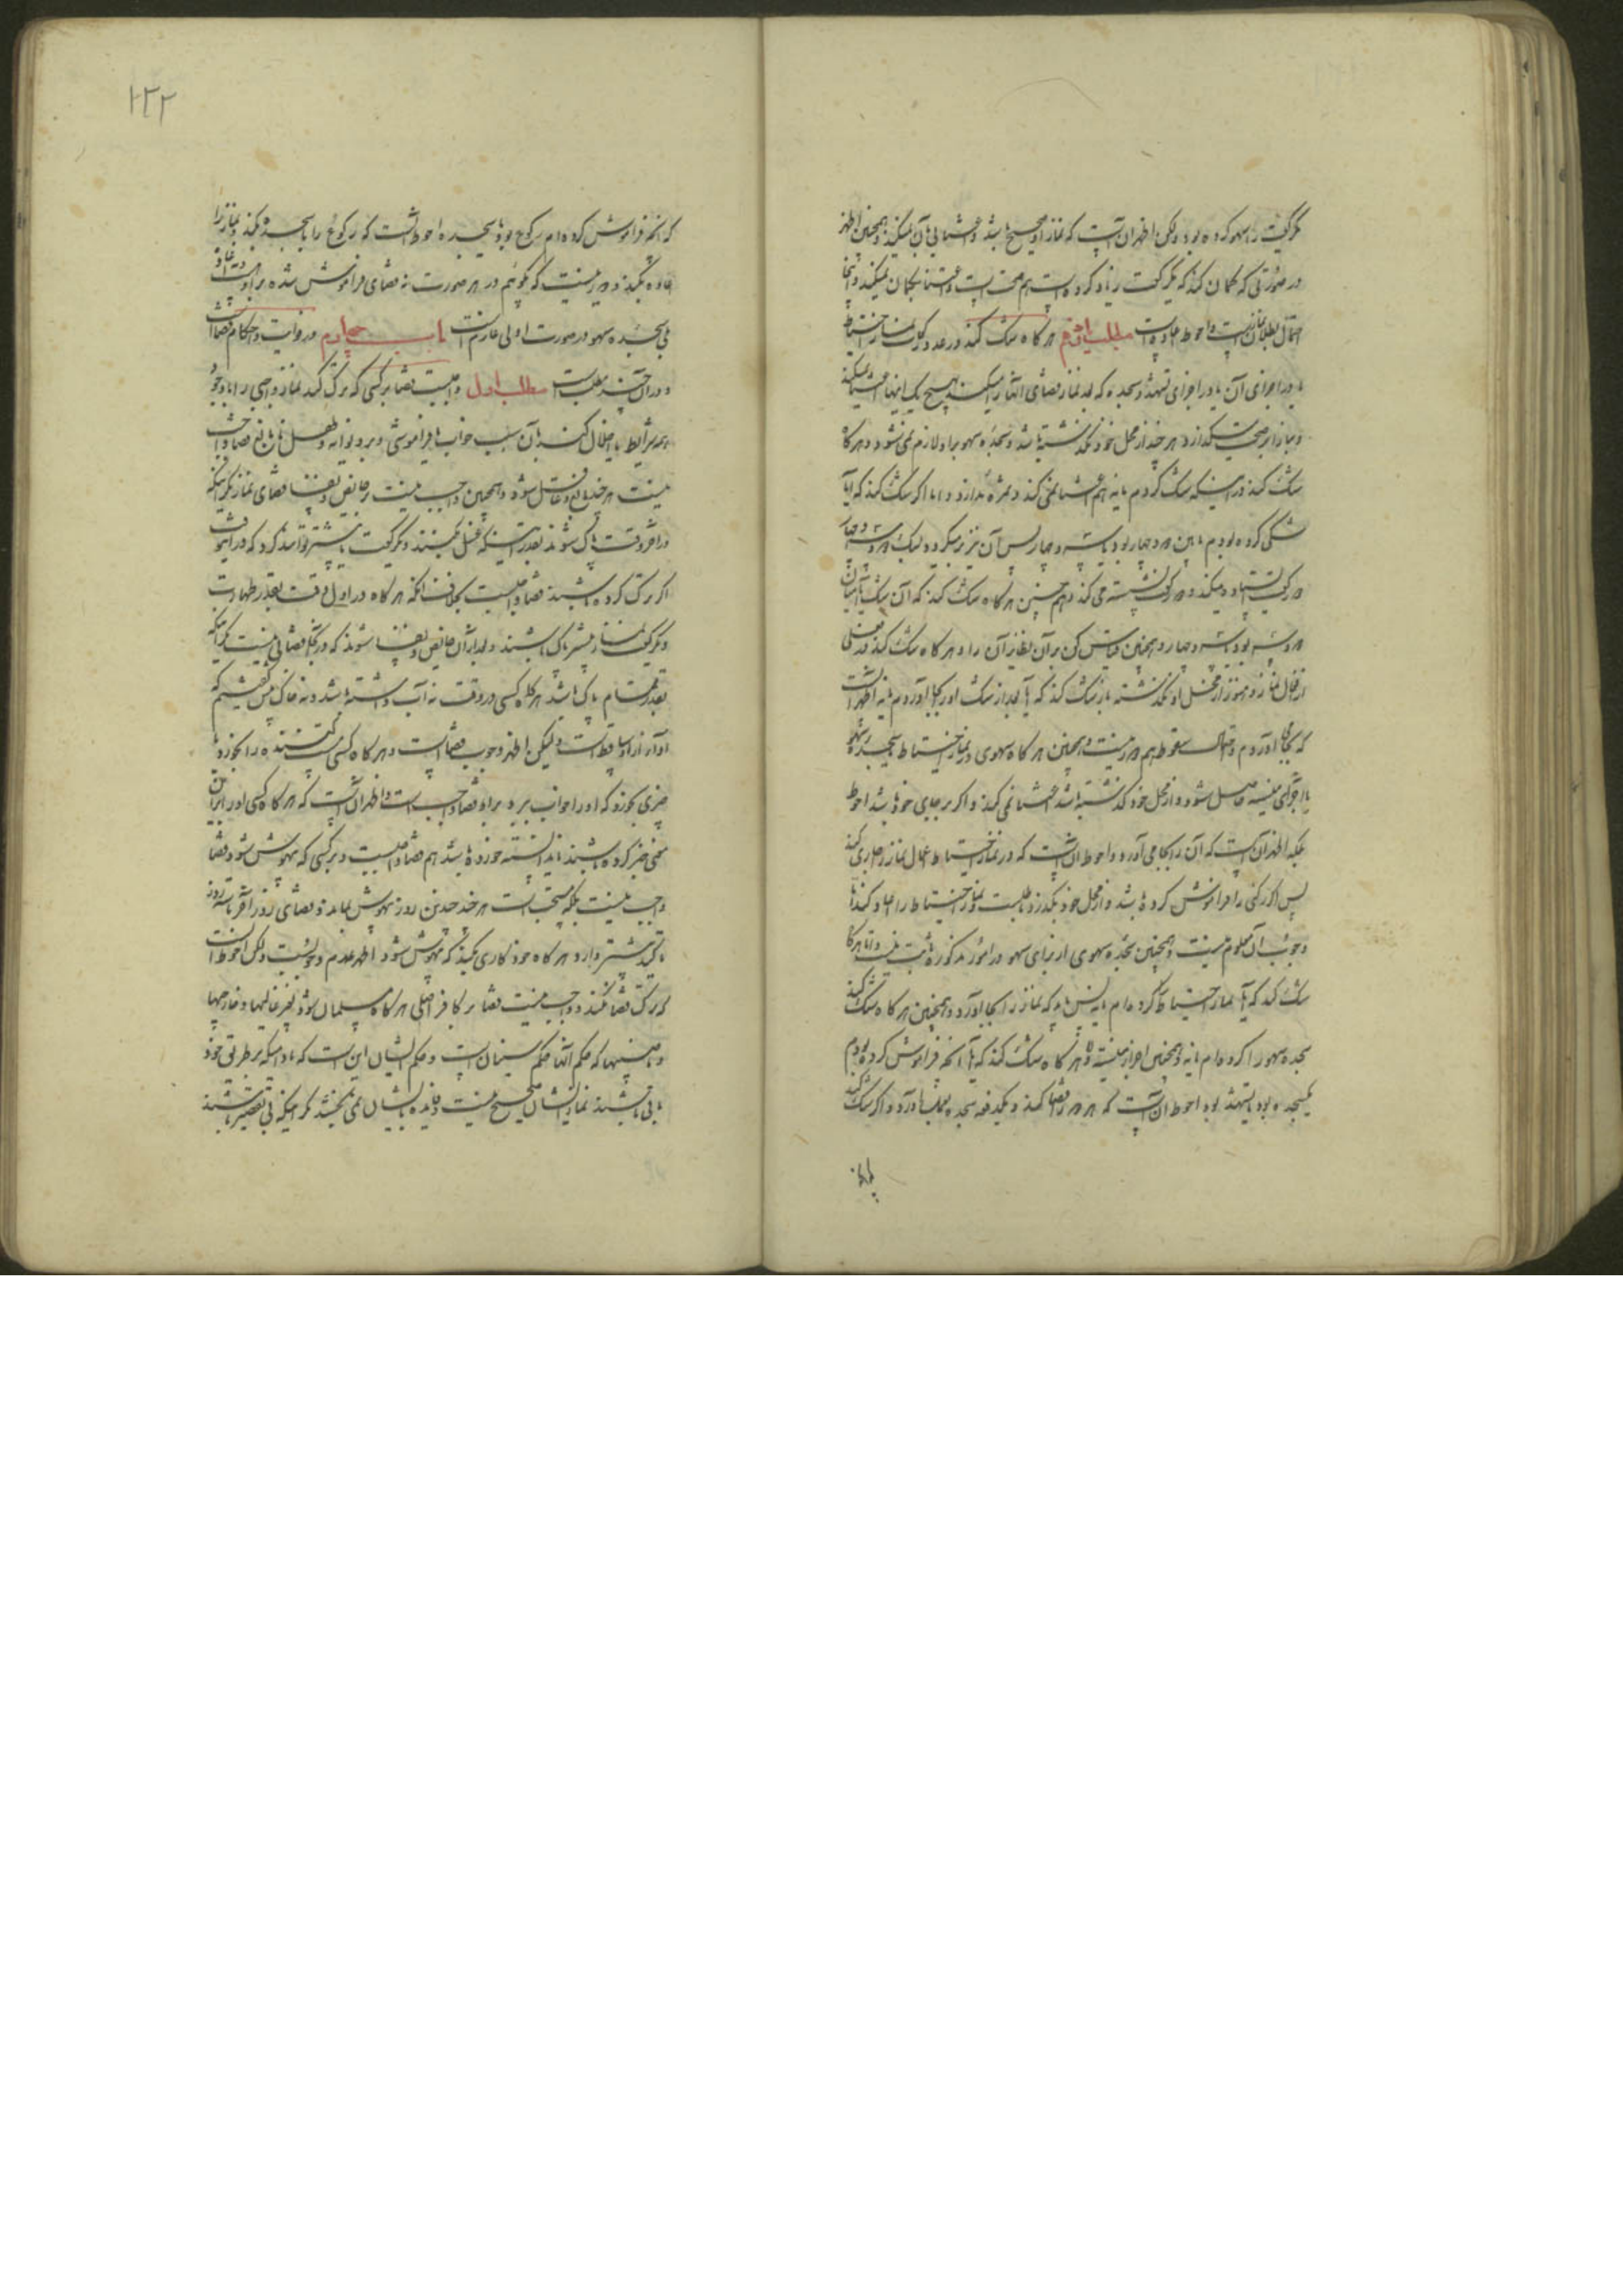 یکرکعت را سهو کرده بود ولکن اظهر آن است که نماز او صحیح باشد و اعتنائی بآن نمیکند و همچنین اظهر
در صورتی که گمان کند که یکرکعت زیاد کرده است هم صحت است و اعتنا بگمان نمیکند و اینجا
احتمال بطلان نماز نیست و احوط اعاده است مطلب هرگاه شک کند در عدد رکعات نماز احتیاط
یا در اجزای آن یا در اجزای تشهد و سجده که بعد نماز قضای آنها را میکند هیچ یک اینها اعتنا نمیکند
و بنا را بر صحت میگذارد هر چند از محل خود نگذشته باشد و سجده سهو بر او لازم نمیشود و هرگاه
شک کند در اینکه شک کردم یا نه هم اعتنا نمی کند و ثمره ندارد و اما اگر شک کند که آیا
شکی کرده بودم مابین دو و چهار بود یا سه و چهار پس آن نیز برمیگردد بشک دو و سه و چهار
دو رکعت ایستاده میکند و دو رکعت نشسته می کند و هم چنین هرگاه شک کند که آن شک آیا میان
دو و سه بود یا سه و چهار و همچنین قیاس کن بر آن نظایر آن را و هرگاه شک کند در فعلی
از افعال نماز و هنوز از محل او نگذشته باز شک کند که آیا بعد از شک او را بجا آوردم یا نه اظهر آنست
که بجا آوردم و احتمال سقوط هم دور نیست و همچنین هرگاه سهوی در نماز احتیاط یا سجده سهو
یا اجزای منسیه حاصل شود و از محل خود گذشته باشد اعتنا نمی کند و اگر بر جای خود باشد احوط
بلکه اظهر آن است که آن را بجا می آورد و احوط آن است که در نماز احتیاط اعمال نماز را جاری کند
پس اگر رکنی را فراموش کرده باشد و از محل خود بگذرد باطلست و نماز احتیاط را اعاده کند اما
وجوب آن معلوم نیست و همچنین سجده سهوی از برای سهو در امور مذکوره ثابت نیست و اما هرگاه
شک کند که آیا نماز احتیاط کرده ام یا نه پس باید که نماز را بجا آورد و همچنین هرگاه شک کند
سجده سهو را کرده ام یا نه و همچنین اجزاء منسیه و هرگاه شک کند که آیا آنچه فراموش کرده بودم
یکسجده بود یا تشهد بود احوط آن است که هر دو را قضا کند و یکدفعه سجده سهو بجا آورد و اگر شک کند
که آنچه فراموش کرده ام رکوع بود یا سجده احوط آنست که رکوع را با سجده بکند و نماز را
اعاده بکند و دور نیست که بگوئیم در هر صورت نه قضای فراموش شده بر او هست و نه اعاده
بلی سجده سهو در صورت اولی لازم است باب چهارم در فوایت و احکام قضا است
و در آن چند مطلب است مطلب اول واجبست قضا بر کسی که ترک کند نماز واجبی را با وجود
همه شرایط یا اخلال کند بآن بسبب خواب یا فراموشی و بر دیوانه و طفل نابالغ قضا واجب
نیست هر چند بالغ و عاقل شود و همچنین واجب نیست بر حایض و نفسا قضای نماز مگر اینکه
در آخر وقت پاک شوند بقدر اینکه غسل بکنند و یکرکعت یا بیشتر توانند کرد که در آنوقت
اگر ترک کرده باشند قضا واجبست بخلاف آنکه هرگاه در اول وقت بقدر طهارت
و یکرکعت نماز بیشتر پاک باشند و بعد از آن حایض و نفسا شوند که در اینجا قضائی نیست مگر آنکه
بقدر نماز تمام پاک باشد هرگاه کسی در وقت نه آب داشته باشد و نه خاک پس گفتیم که
ادا از او ساقط است ولیکن اظهر وجوب قضا است و هرگاه کسی مست کننده را بخورد یا
چیزی بخورد که او را خواب ببرد بر او قضا واجب است و اظهر آن است که هرگاه کسی او را بر آن
بیخبر کرده باشند یا ندانسته خورده باشد هم قضا واجبست و بر کسی که بیهوش شود قضا
واجب نیست بلکه مستحب است هر چند چندین روز بیهوش بماند و قضای روز آخر یا سه روز
تأکید بیشتر دارد و هرگاه خود کاری بکند که بیهوش شود اظهر عدم وجوبست ولکن احوط آنست
که ترک قضا نکند و واجب نیست قضا بر کافر اصلی هرگاه مسلمان شود بغیر غالیها و خارجیها
و ناصبیها که حکم آنها حکم سنیان است و حکم ایشان این است که مادامیکه بر طریق خود
باقی باشند نماز ایشان صحیح نیست و فایده بایشان نمی بخشد مگر اینکه بی تقصیر باشند
۱۲۲